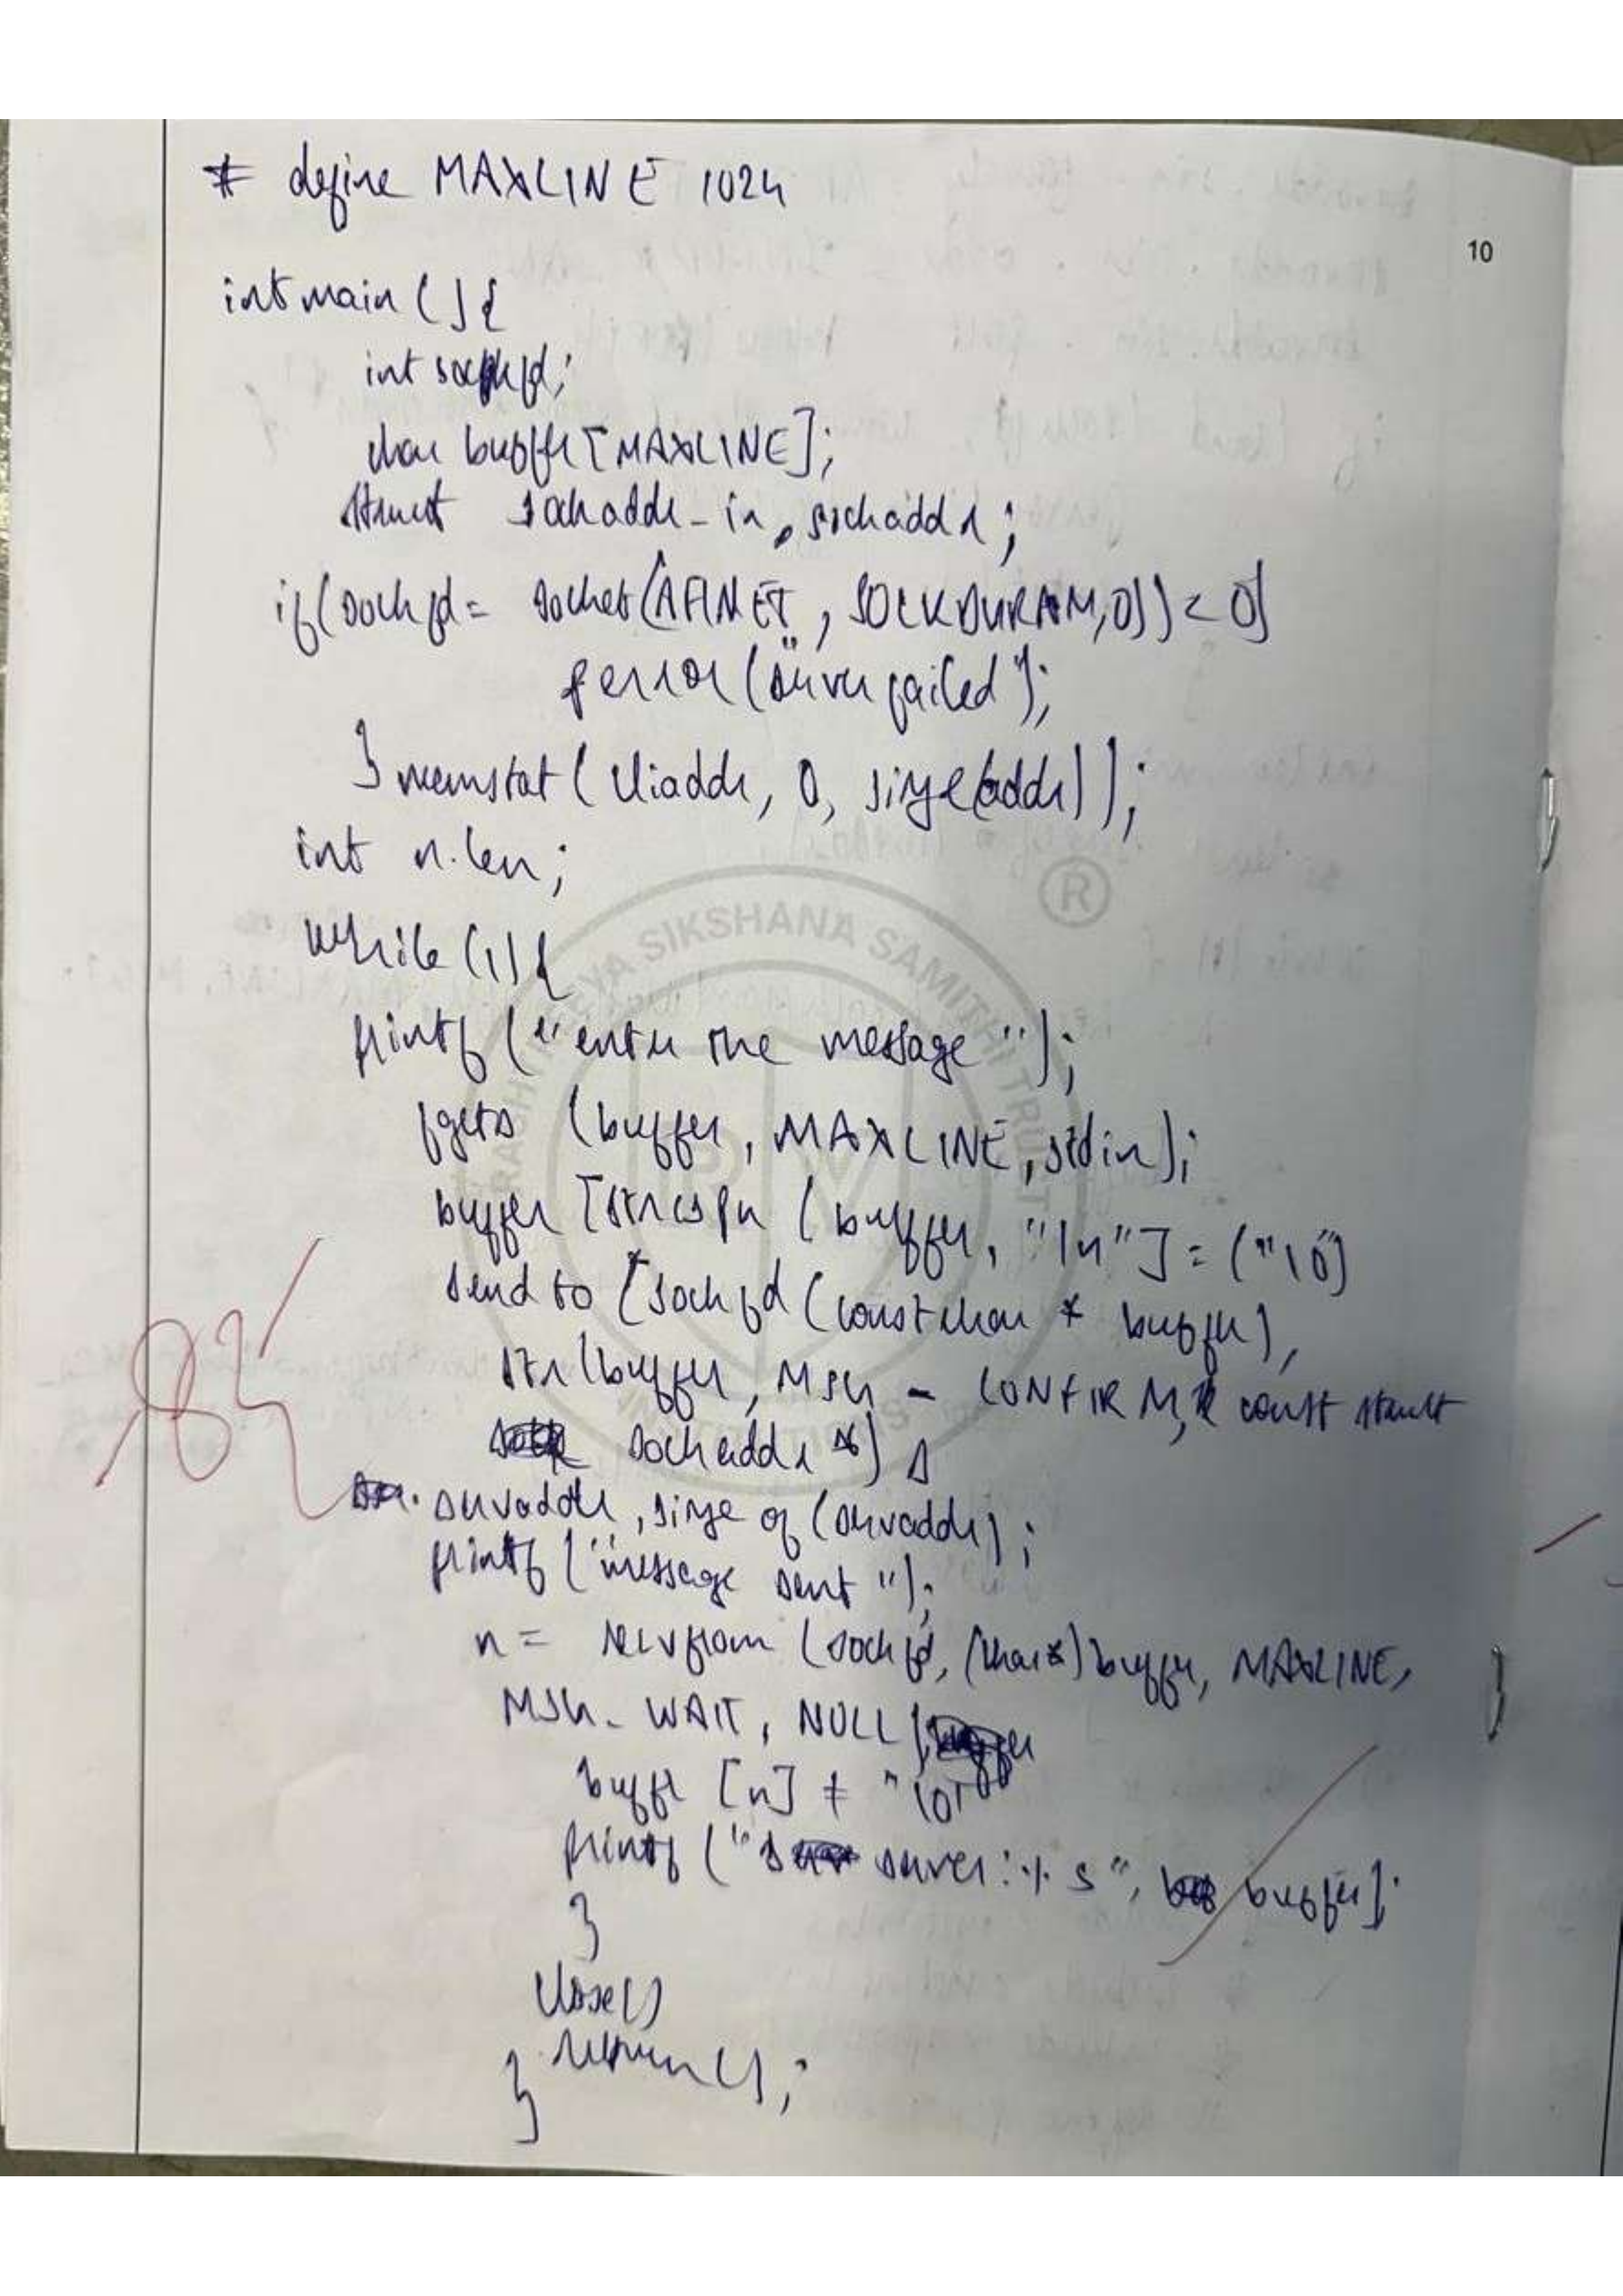 # define MAXLINE 1024
10
int main () {
int sockfd;
char buffer [MAXLINE];
struct sockaddr_in, sockaddr;
if(sockfd = socket(AFINET, SOCKDURAM,0)) < 0)
perror ("server failed");
} memstat (cliaddr, 0, sizye(addr));
int n.len;
while (1) {
printf ("enter the message");
fgets (buffer, MAXLINE, stdin);
buffer [strcspn (buffer, "\n"] = ("\0)
send to (sockfd (const char * buffer),
str(buffer, MSG - CONFIRM, const struct
sockaddr *)
servaddr, sizye of (servaddr);
printf ("message sent");
n = recvfrom (sockfd, (char*) buffer, MAXLINE,
MSG_WAIT, NULL
buffr [n] = "\0"
printf ("server: % s", buffer);
}
close()
return ();
}
RASHTREEYA SIKSHANA SAMITHI TRUST
RV
INSTITUTIONS
®